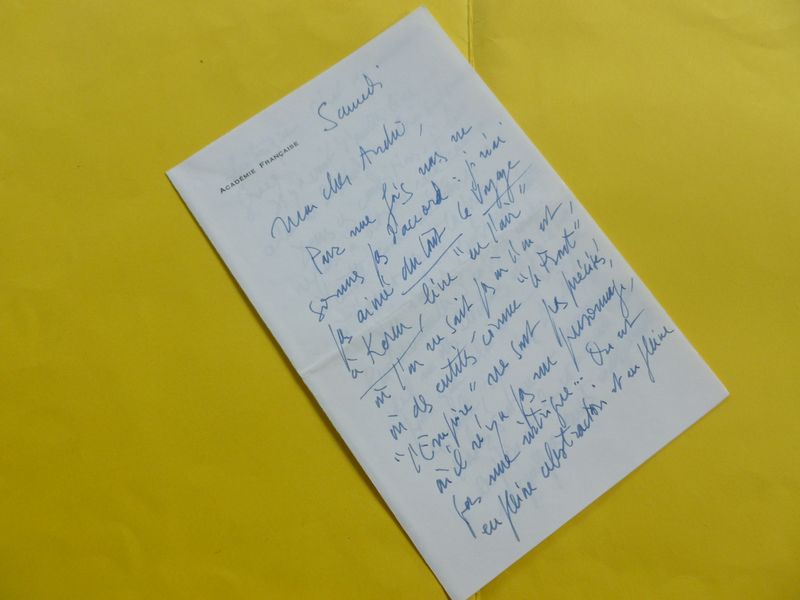 ACADÉMIE FRANÇAISE
Samedi
Mon cher André,
Pour une fois nous ne
sommes pas d'accord : je n'ai
pas aimé du tout le Voyage
à Koren, livre "en l'air"
où l'on ne sait pas où l'on est,
où des entités comme "le Front"
"l'Empire" ne sont pas précisés,
où il n'y a pas un personnage,
pas une intrigue... On est
en pleine abstraction et en pleine